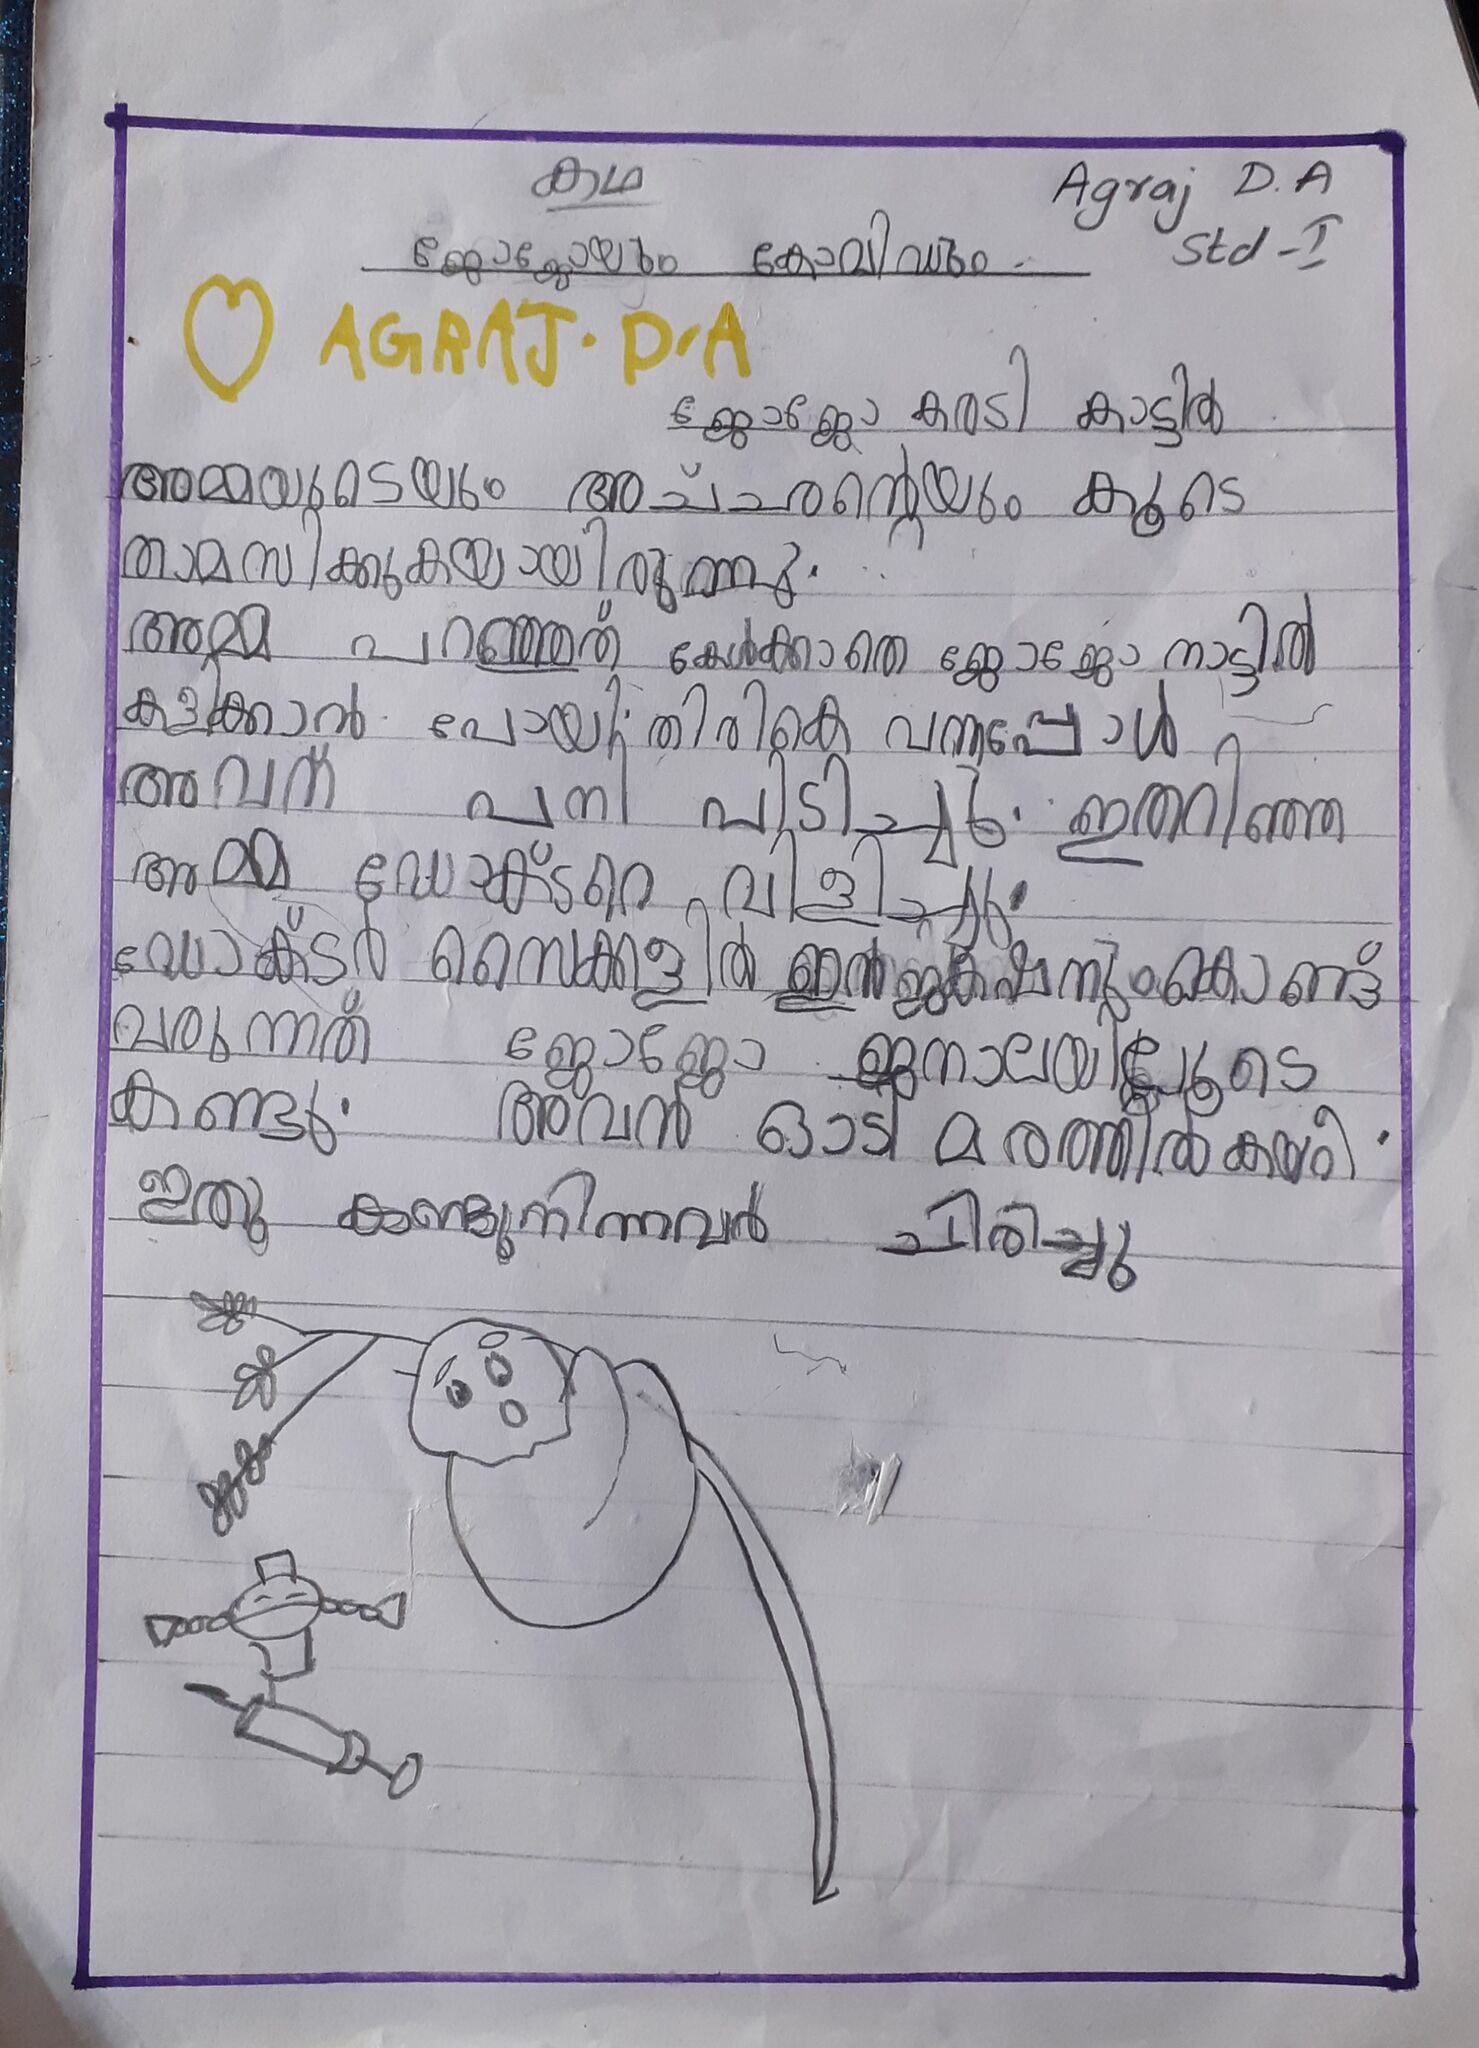 കഥ
Agraj D.A
Std - I
ജോജോയും കോവിഡും.
AGRAJ. D.A
ജോജോ കരടി കാട്ടിൽ
അമ്മയുടെയും അച്ചന്റെയും കൂടെ
താമസിക്കുകയായിരുന്നു.
അമ്മ പറഞ്ഞത് കേൾക്കാതെ ജോജോ നാട്ടിൽ
കളിക്കാൻ പോയി. തിരികെ വന്നപ്പോൾ
അവന് പനി പിടിച്ചു. ഇതറിഞ്ഞ
അമ്മ ഡോക്ടറെ വിളിച്ചു.
ഡോക്ടർ സൈക്കളിൽ ഇൻജക്ഷനുംകൊണ്ട്
വരുന്നത് ജോജോ ജനാലയിലൂടെ
കണ്ടു. അവൻ ഓടി മരത്തിൽ കയറി.
ഇതു കണ്ടുനിന്നവർ ചിരിച്ചു